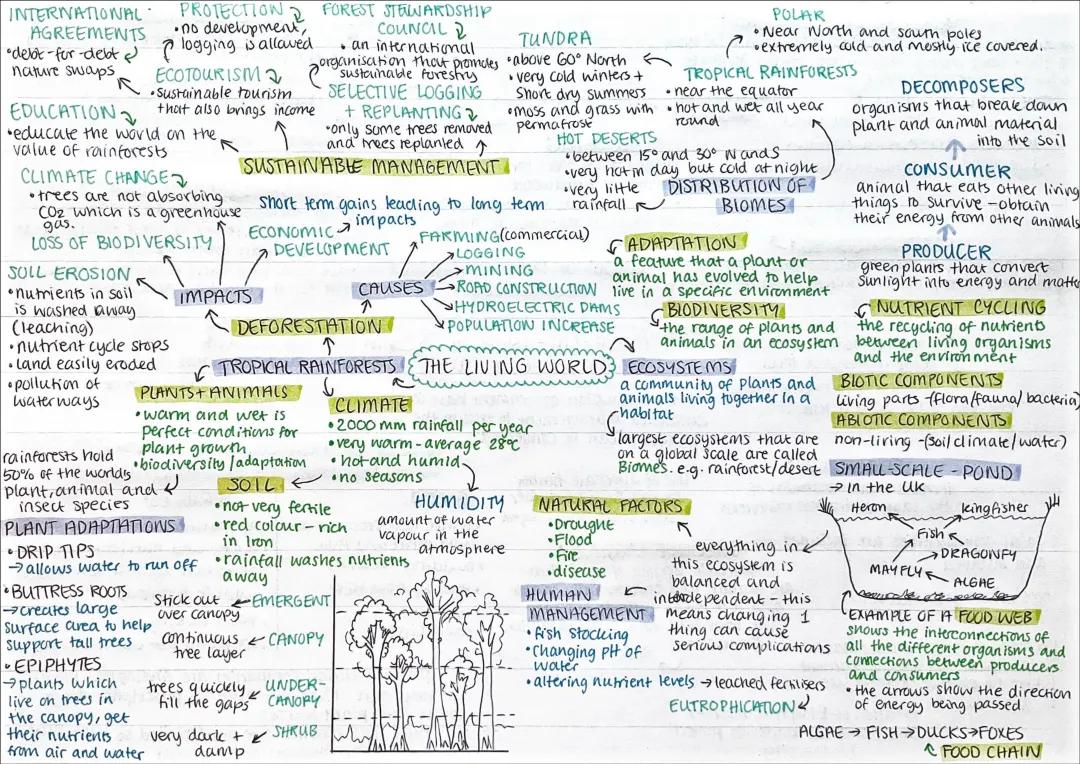 INTERNATIONAL
AGREEMENTS
•debt-for-debt
nature swaps
PROTECTION
•no development,
logging is allowed
FOREST STEWARDSHIP
COUNCIL
• an international
organisation that promotes
sustainable forestry
ECOTOURISM
•sustainable tourism
that also brings income
SELECTIVE LOGGING
+ REPLANTING
•only some trees removed
and trees replanted
EDUCATION
•educate the world on the
value of rainforests
SUSTAINABLE MANAGEMENT
TUNDRA
•above 60° North
•very cold winters +
short dry summers
•moss and grass with
permafrost
POLAR
• Near North and south poles
•extremely cold and mostly ice covered.
TROPICAL RAINFORESTS
• near the equator
• hot and wet all year
round
HOT DESERTS
•between 15° and 30° N and S
•very hot in day but cold at night
•very little
rainfall
DISTRIBUTION OF
BIOMES
DECOMPOSERS
organisms that break down
plant and animal material
into the soil
CONSUMER
animal that eats other living
things to survive -obtain
their energy from other animals
PRODUCER
green plants that convert
sunlight into energy and matte
CLIMATE CHANGE
• trees are not absorbing
CO2 which is a greenhouse
gas.
LOSS OF BIODIVERSITY
SOIL EROSION
•nutrients in soil
is washed away
(leaching)
•nutrient cycle stops
•land easily eroded
•pollution of
waterways
IMPACTS
Short term gains leading to long term
impacts
ECONOMIC
DEVELOPMENT
CAUSES
FARMING (commercial)
LOGGING
MINING
ROAD CONSTRUCTION
HYDROELECTRIC DAMS
POPULATION INCREASE
DEFORESTATION
TROPICAL RAINFORESTS
THE LIVING WORLD
ADAPTATION
a feature that a plant or
animal has evolved to help
live in a specific environment
BIODIVERSITY
the range of plants and
animals in an ecosystem
ECOSYSTEMS
a community of plants and
animals living together in a
habitat
largest ecosystems that are
on a global scale are called
Biomes. e.g. rainforest/desert
NUTRIENT CYCLING
the recycling of nutrients
between living organisms
and the environment
BIOTIC COMPONENTS
living parts -(flora/fauna/bacteria)
ABIOTIC COMPONENTS
non-living -(soil/climate/water)
SMALL-SCALE - POND
→ in the UK
Heron
kingfisher
Fish
DRAGONFY
MAYFLY
ALGAE
EXAMPLE OF A FOOD WEB
shows the interconnections of
all the different organisms and
connections between producers
and consumers
• the arrows show the direction
of energy being passed
ALGAE → FISH → DUCKS → FOXES
FOOD CHAIN
PLANTS + ANIMALS
•warm and wet is
perfect conditions for
plant growth
•biodiversity/adaptation
rainforests hold
50% of the worlds
plant, animal and
insect species
CLIMATE
• 2000 mm rainfall per year
•very warm - average 28°c
• hot and humid
•no seasons
SOIL
•not very fertile
•red colour - rich
in iron
•rainfall washes nutrients
away
HUMIDITY
amount of water
vapour in the
atmosphere
PLANT ADAPTATIONS
• DRIP TIPS
→allows water to run off
•BUTTRESS ROOTS
→creates large
surface area to help
support tall trees
• EPIPHYTES
→plants which
live on trees in
the canopy, get
their nutrients
from air and water
stick out
over canopy
EMERGENT
continuous
tree layer
CANOPY
trees quickly
fill the gaps
UNDER-
CANOPY
very dark +
damp
SHRUB
NATURAL FACTORS
•Drought
•Flood
•Fire
•disease
everything in
this ecosystem is
balanced and
independent - this
means changing 1
thing can cause
serious complications
HUMAN
MANAGEMENT
•fish stocking
•changing pH of
water
•altering nutrient levels → leached fertilisers
EUTROPHICATION